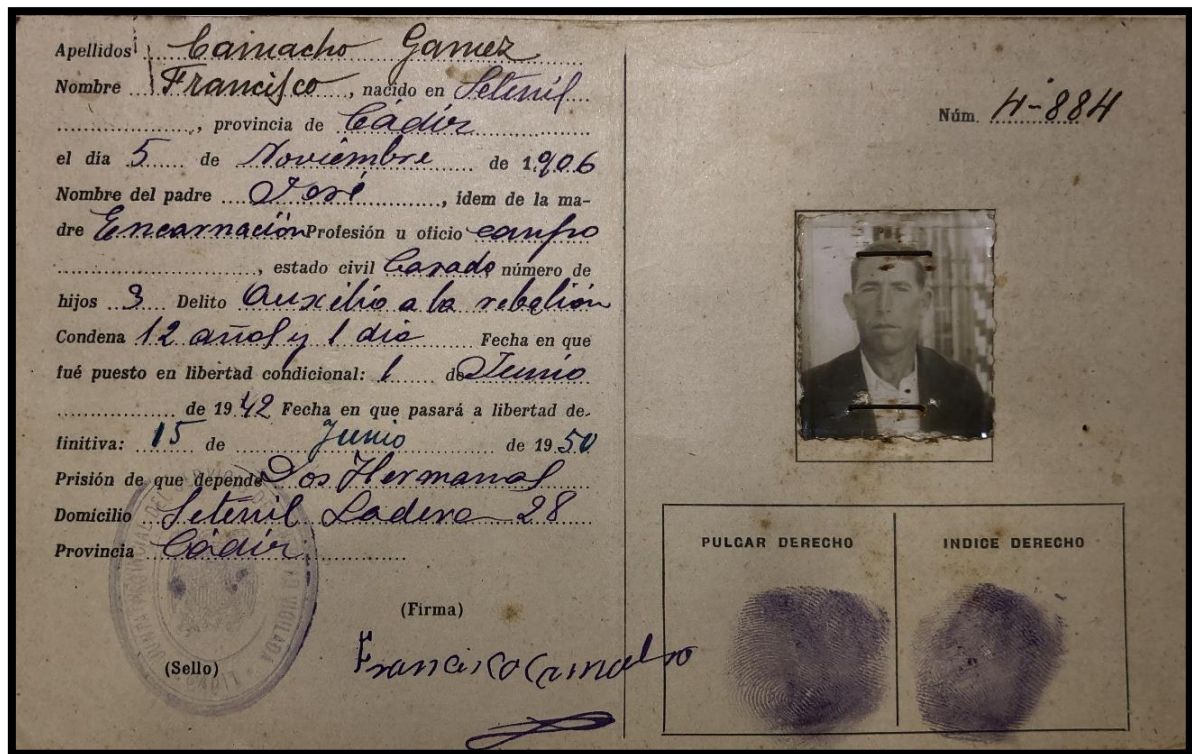 Apellidos Camacho Gamez
Nombre Francisco, nacido en Setenil
, provincia de Cádiz
el día 5 de Noviembre de 1.906
Nombre del padre José, ídem de la ma-
dre Encarnación Profesión u oficio campo
, estado civil Casado número de
hijos 3 Delito Auxilio a la rebelión
Condena 12 años y 1 día Fecha en que
fué puesto en libertad condicional: 1 de Junio
de 1942 Fecha en que pasará a libertad de-
finitiva: 15 de Junio de 1950
Prisión de que depende Dos Hermanas
Domicilio Setenil Ladera 28
Provincia Cádiz
(Firma)
(Sello)
Francisco Camacho
Núm. H-884
PULGAR DERECHO
INDICE DERECHO
VIGILADA